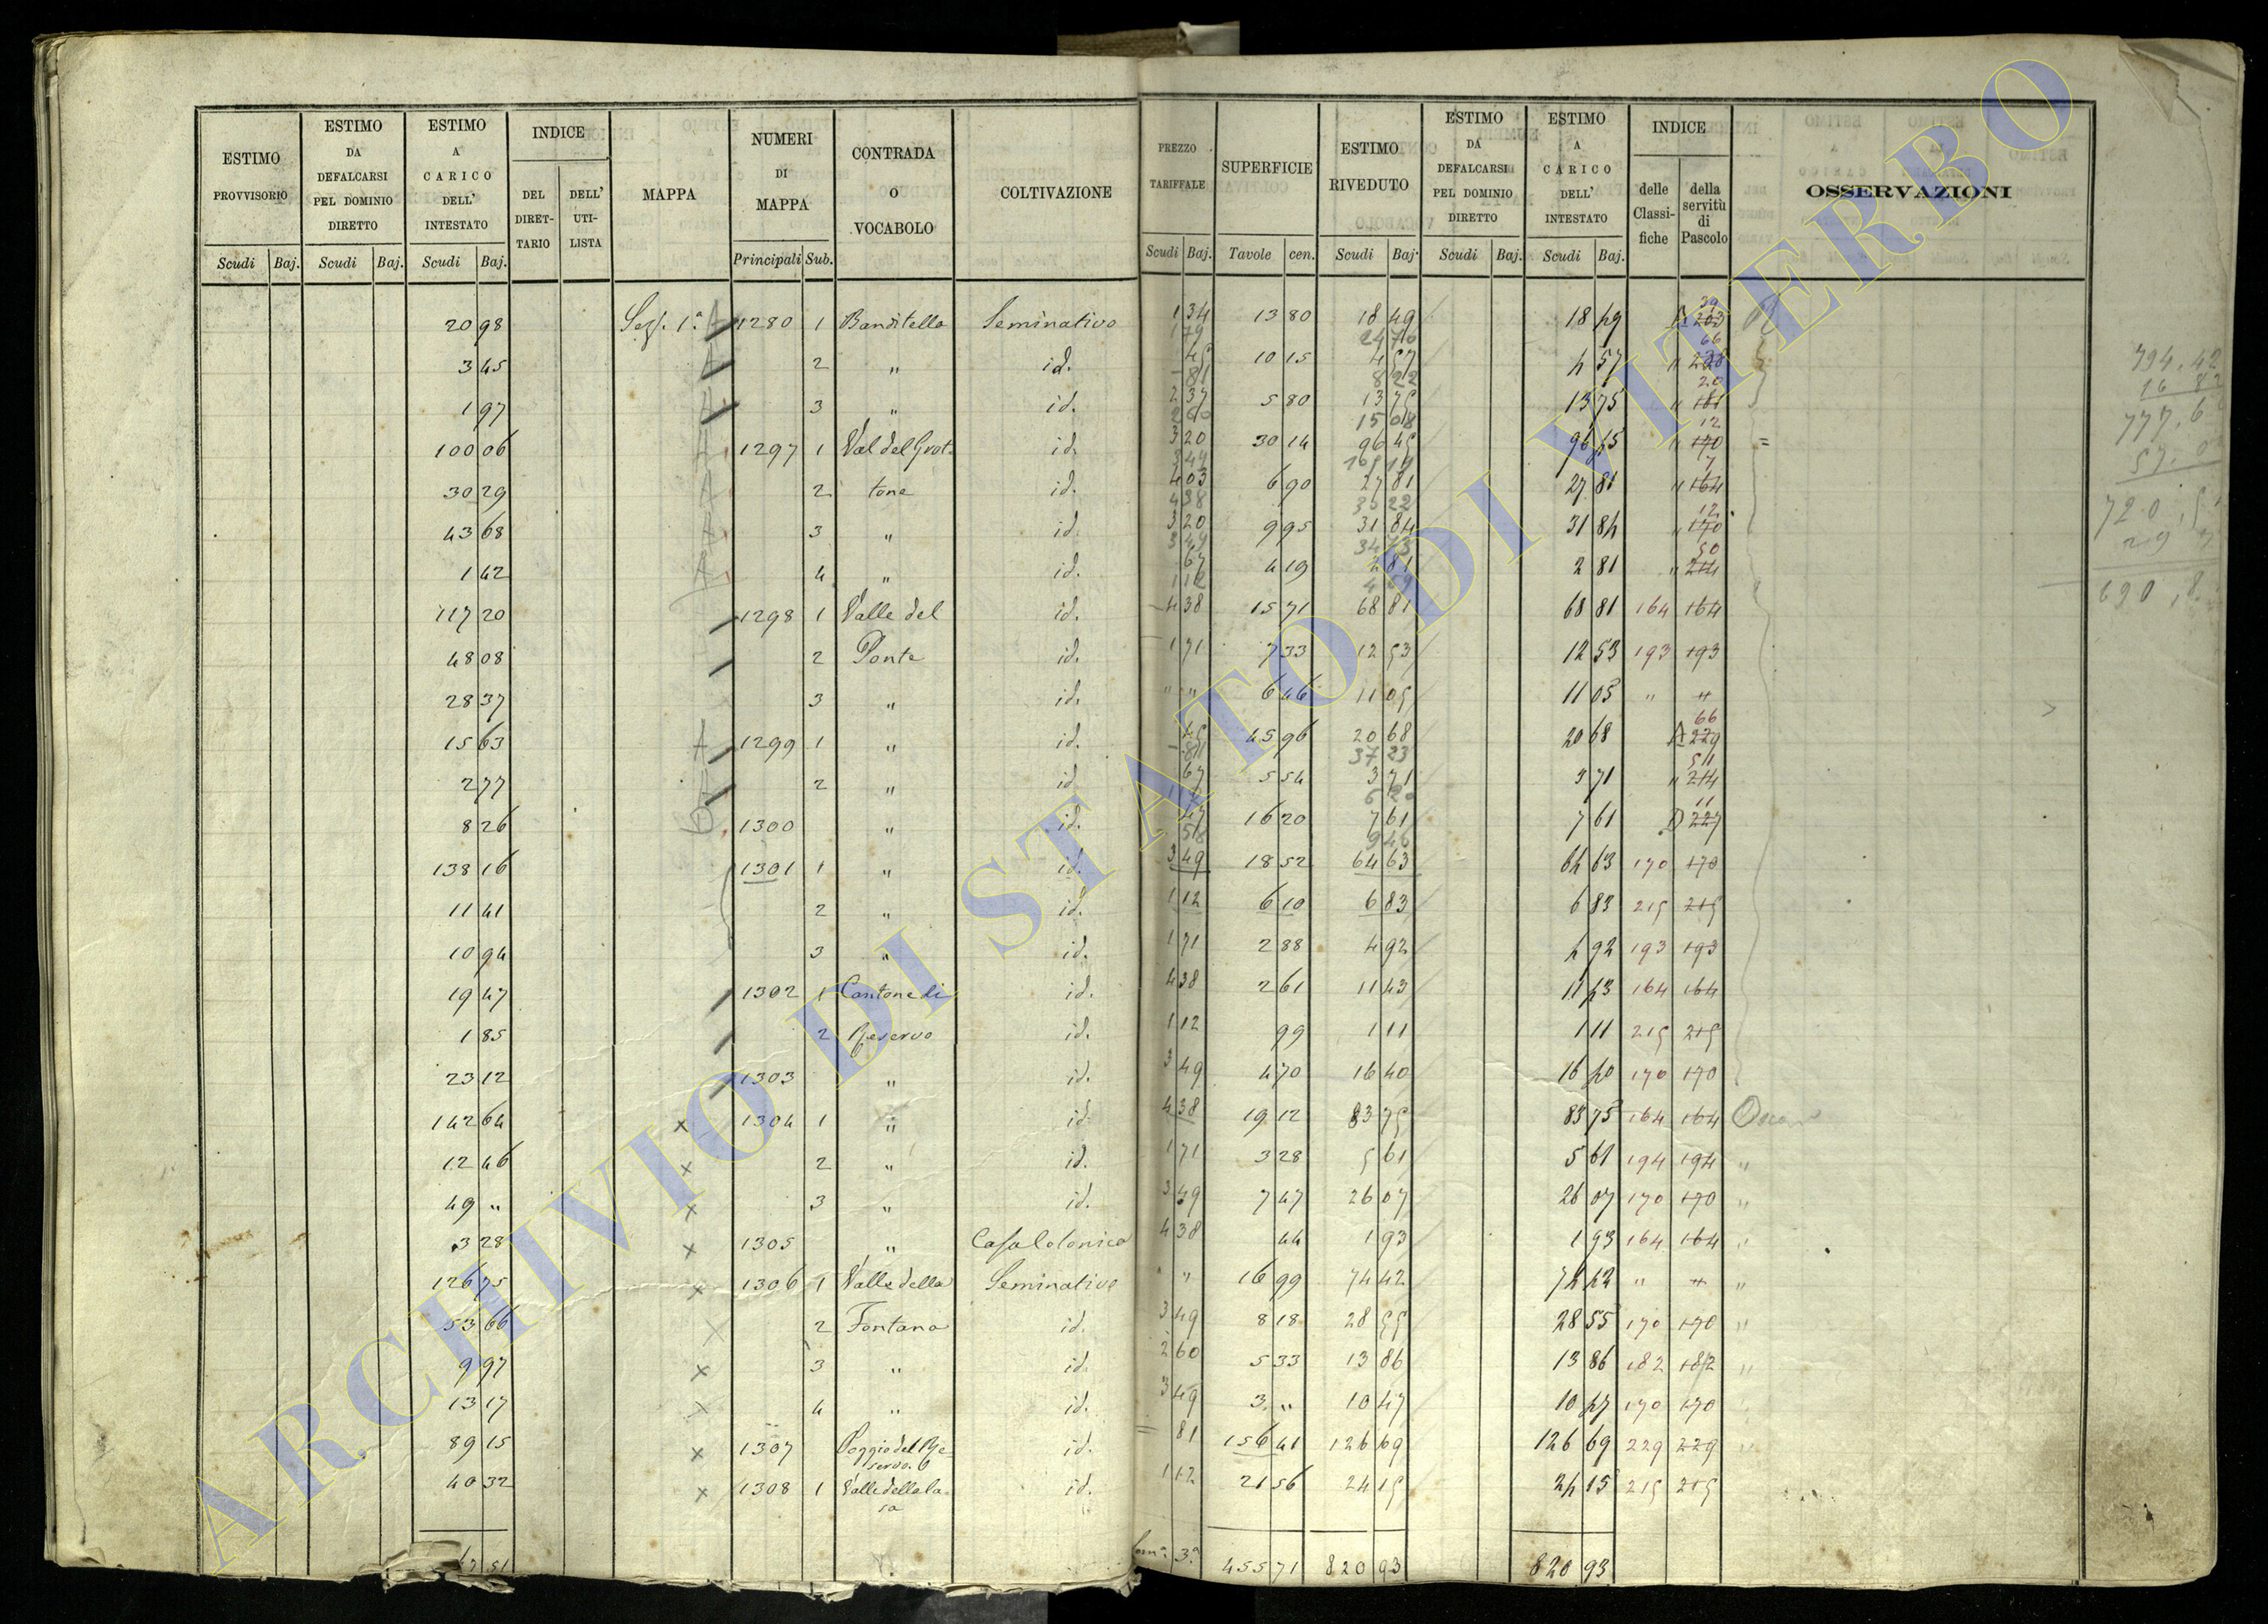 ESTIMO PROVVISORIO | ESTIMO DA DEFALCARSI PEL DOMINIO DIRETTO | ESTIMO A CARICO DELL' INTESTATO | INDICE | MAPPA | NUMERI DI MAPPA | CONTRADA O VOCABOLO | COLTIVAZIONE | PREZZO TARIFFALE | SUPERFICIE | ESTIMO RIVEDUTO | ESTIMO DA DEFALCARSI PEL DOMINIO DIRETTO | ESTIMO A CARICO DELL' INTESTATO | INDICE | OSSERVAZIONI
DEL DIRETTARIO | DELL' UTILISTA | delle Classifiche | della servitù di Pascolo
Scudi Baj. Scudi Baj. Scudi Baj. Principali Sub. Scudi Baj. Tavole cen. Scudi Baj. Scudi Baj. Scudi Baj.
20 98 Sez. 1ª 1280 1 Banditella Seminativo 1 34 13 80 18 49 18 49
3 45 2 " id. 45 10 15 4 57 4 57
1 97 3 " id. 2 37 5 80 13 75 13 75
100 06 1297 1 Val del Grot- id. 3 20 30 14 96 45 96 45 170
30 29 2 tone id. 4 03 6 90 27 81 27 81 164
43 68 3 " id. 3 20 9 95 31 84 31 84 170
1 42 4 " id. 67 4 19 2 81 2 81 214
117 20 1298 1 Valle del id. 4 38 15 71 68 81 68 81 164 164
48 08 2 Ponte id. 1 71 7 33 12 53 12 53 193 193
28 37 3 " id. " " 6 46 11 05 11 05 " "
15 63 1299 1 " id. 45 45 96 20 68 20 68 229
2 77 2 " id. 67 5 54 3 71 3 71 214
8 26 1300 " id. 47 16 20 7 61 7 61 227
138 16 1301 1 " id. 3 49 18 52 64 63 64 63 170 170
11 41 2 " id. 1 12 6 10 6 83 6 83 215 215
10 94 3 " id. 1 71 2 88 4 92 4 92 193 193
19 47 1302 1 Cantone di id. 4 38 2 61 11 43 11 43 164 164
1 85 2 Reservo id. 1 12 99 1 11 1 11 215 215
23 12 1303 " id. 3 49 4 70 16 40 16 40 170 170
142 64 1304 1 " id. 4 38 19 12 83 75 83 75 164 164
12 46 2 " id. 1 71 3 28 5 61 5 61 194 194 "
49 " 3 " id. 3 49 7 47 26 07 26 07 170 170 "
3 28 1305 " Casa Colonica 4 38 44 1 93 1 93 164 164 "
126 75 1306 1 Valle della Seminativo " " 16 99 74 42 74 42 " " "
53 66 2 Fontana id. 3 49 8 18 28 55 28 55 170 170 "
9 97 3 " id. 2 60 5 33 13 86 13 86 182 182 "
13 17 4 " id. 3 49 3 " 10 47 10 47 170 170
89 15 1307 Poggio del Re- id. 81 156 41 126 69 126 69 229 229 "
servo
40 32 1308 1 Valle della Ca- id. 1 12 21 56 24 15 24 15 215 215
sa
51 3ª 455 71 820 93 820 93
ARCHIVIO DI STATO DI VITERBO